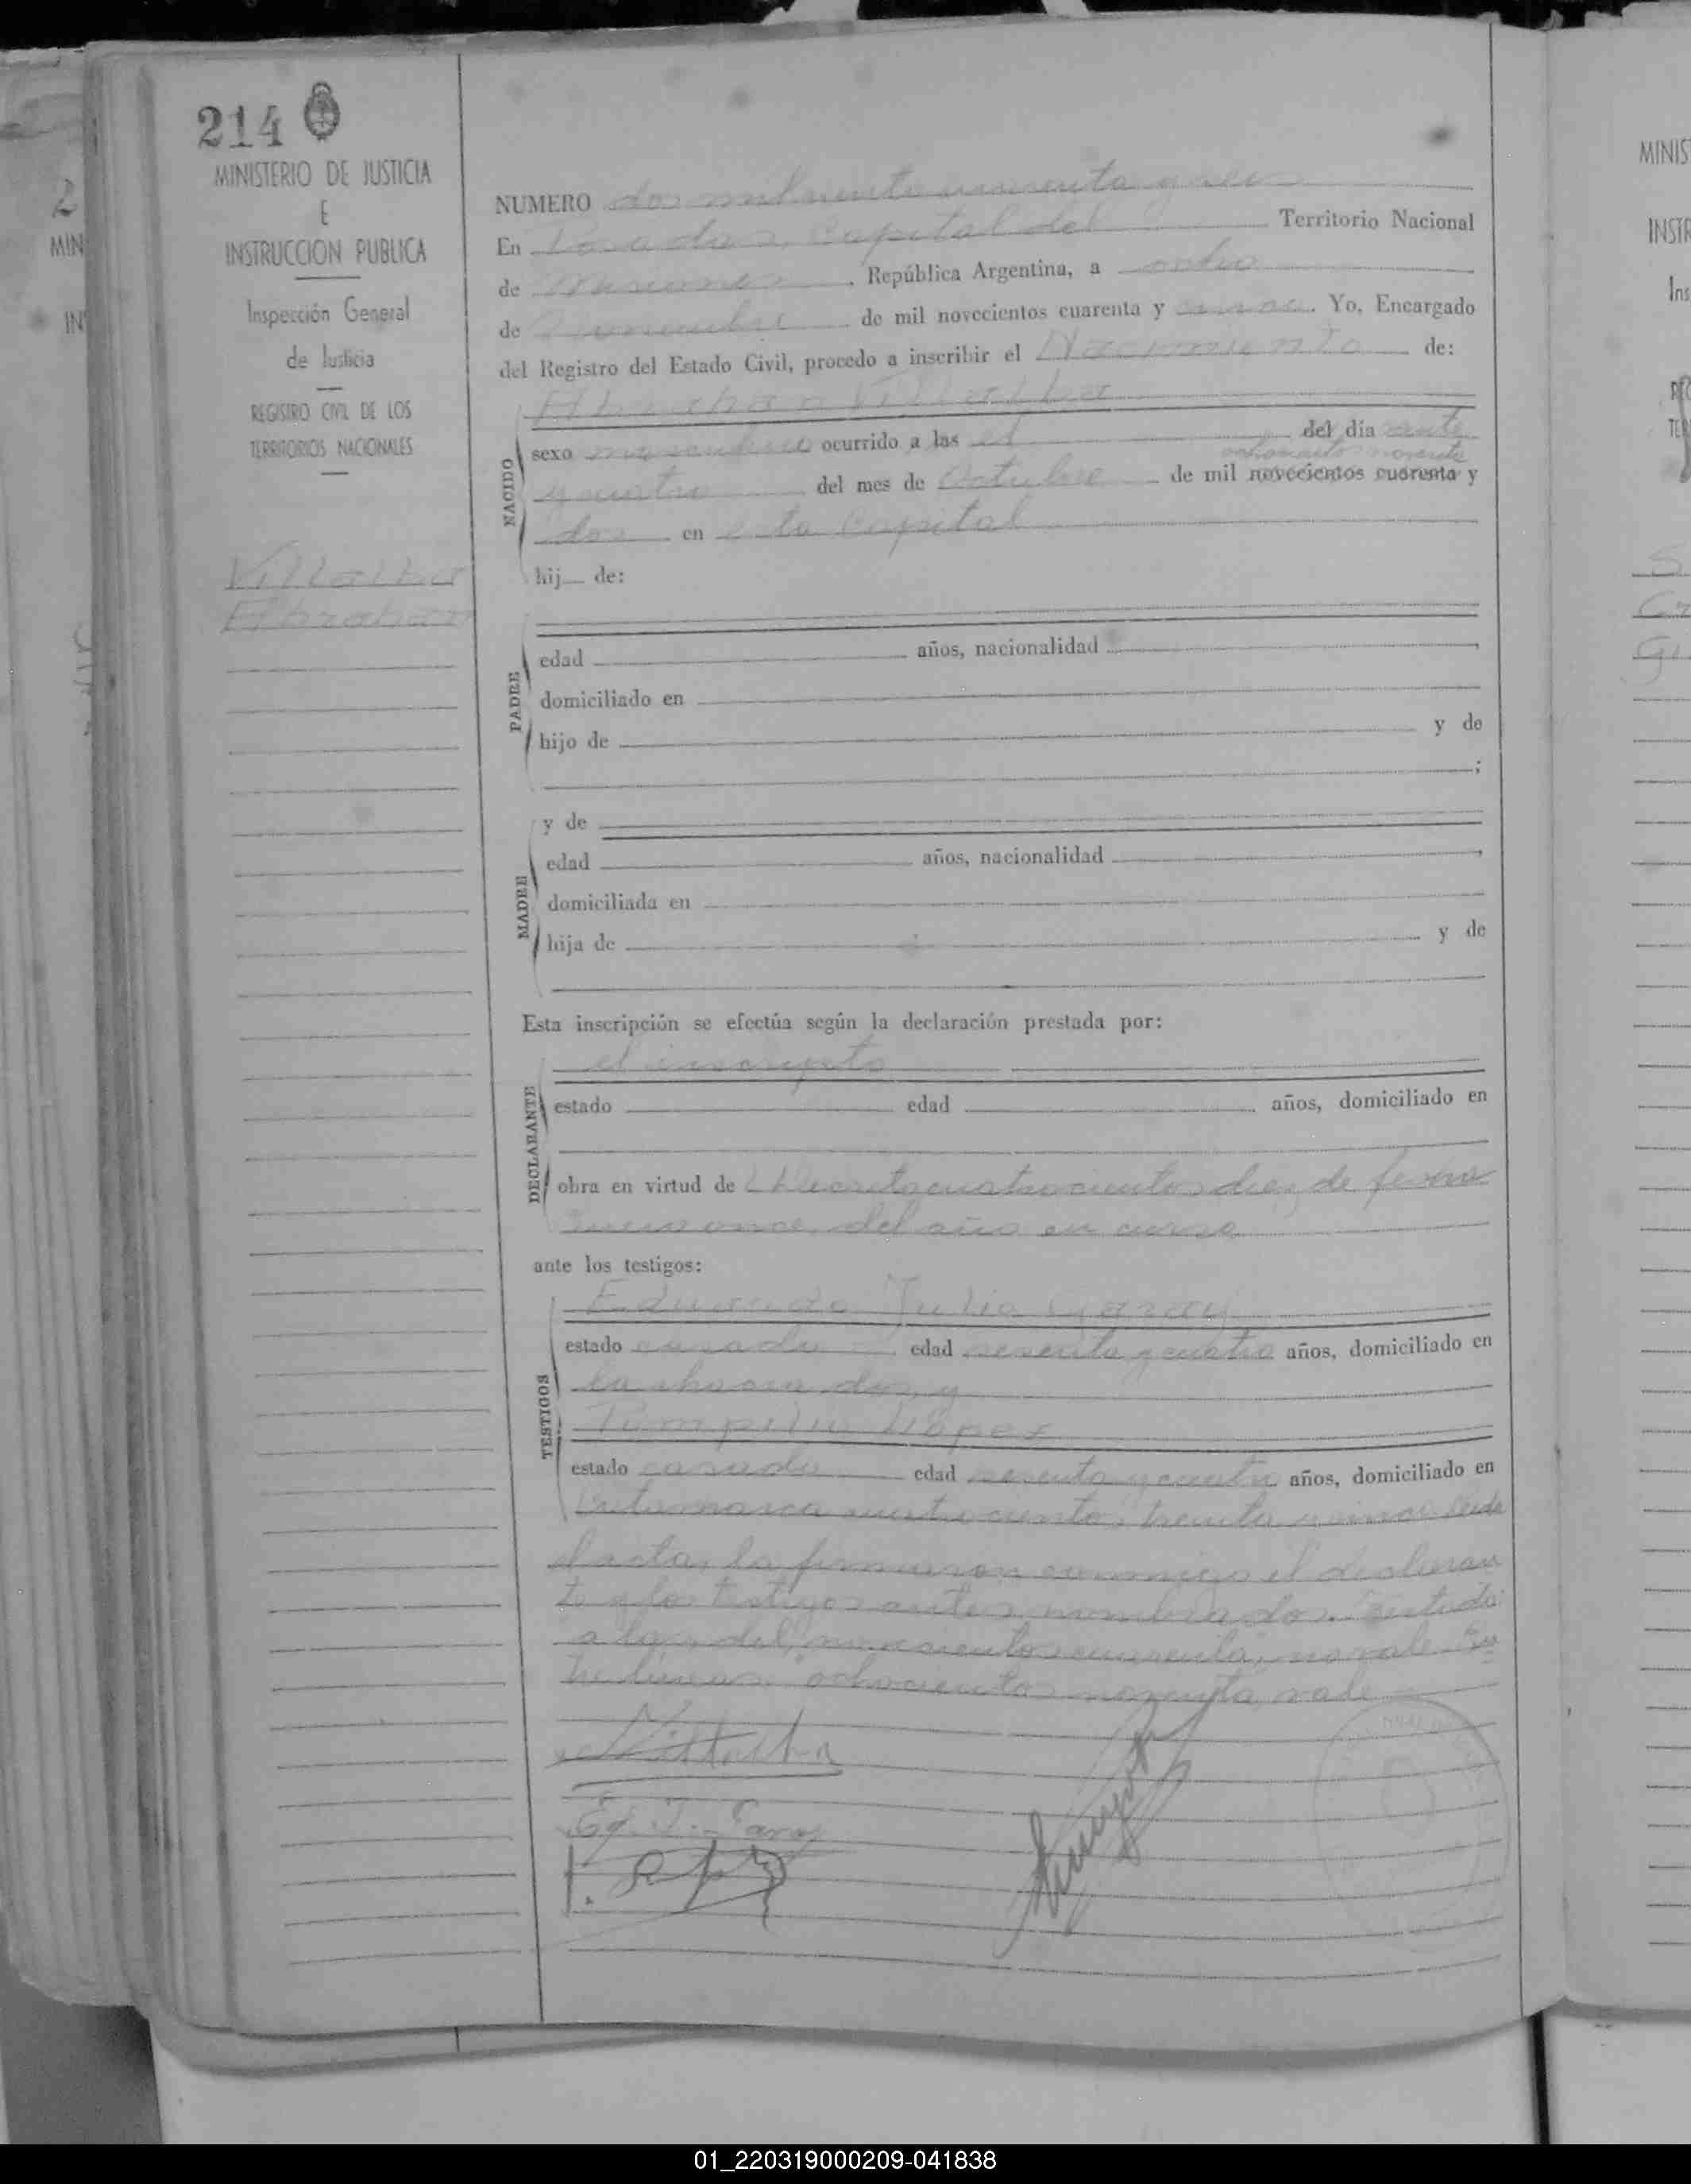 214
MINISTERIO DE JUSTICIA
E
INSTRUCCION PUBLICA
Inspección General
de Justicia
REGISTRO CIVIL DE LOS
TERRITORIOS NACIONALES
Villalba
Abrahan
NUMERO dos mil ciento cincuenta y seis
En Posadas, Capital del Territorio Nacional
de Misiones, República Argentina, a ocho
de Noviembre de mil novecientos cuarenta y cinco. Yo, Encargado
del Registro del Estado Civil, procedo a inscribir el Nacimiento de:
Abrahan Villalba
NACIDO
sexo masculino ocurrido a las el del día veinte
ochocientos noventa
y cuatro del mes de Octubre de mil novecientos cuarenta y
dos en esta Capital
hij de:
PADRE
edad años, nacionalidad
domiciliado en
hijo de y de
;
y de
MADRE
edad años, nacionalidad
domiciliada en
hija de y de
Esta inscripción se efectúa según la declaración prestada por:
el inscripto
DECLARANTE
estado edad años, domiciliado en
obra en virtud de Decreto cuatrocientos diez de fecha
enero once del año en curso
ante los testigos:
Eduardo Julio Garay
TESTIGOS
estado casado edad sesenta y cuatro años, domiciliado en
la chacra dos, y
Pompilio López
estado casado edad sesenta y cuatro años, domiciliado en
Catamarca cuatrocientos treinta y cinco. Leida
el acta, la firmaron conmigo el declaran
te y los testigos antes nombrados. Testado:
a las, del, novecientos cuarenta, no vale. En
tre líneas: ochocientos noventa, vale
Villalba
Ed. J. Garay
MINIS
INSTR
Ins
01_220319000209-041838